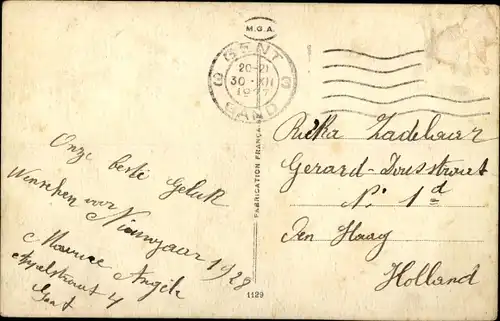 M.G.A.
GENT
3 3
20-21
30 XII
1927
GAND
Onze beste Geluk
Wenschen voor
Nieuwjaar 1928
Maurice Angèle
Appelstraat 4
Gent
FABRICATION FRANÇAISE
1129
Rika Zadelaer
Gerard-Doustraat
No 1d
Den Haag
Holland